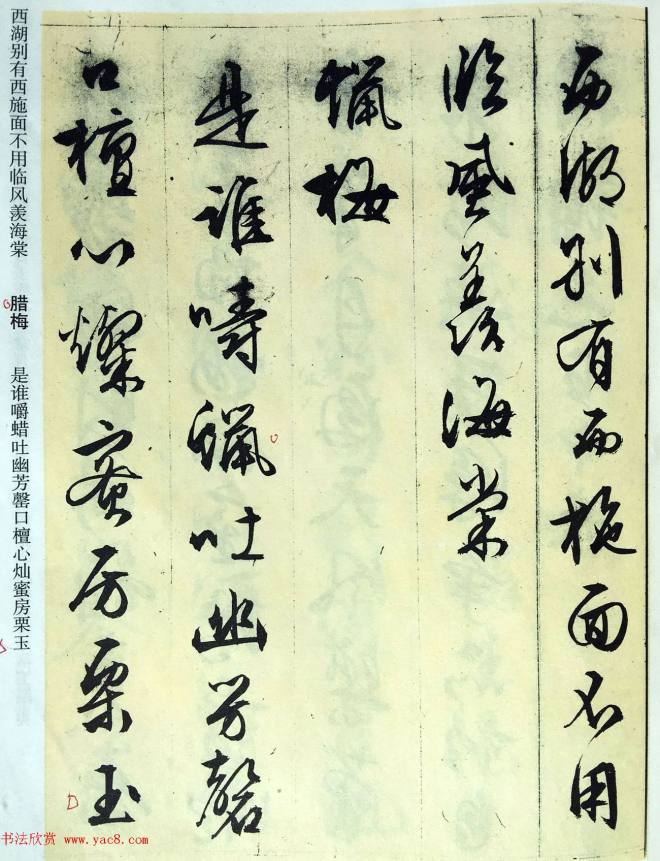 西湖别有西施面不用
临风羡海棠
蜡梅
是谁嚼蜡吐幽芳罄
口檀心灿蜜房栗玉
西湖别有西施面不用临风羡海棠 腊梅 是谁嚼蜡吐幽芳罄口檀心灿蜜房栗玉
书法欣赏 www.yac8.com